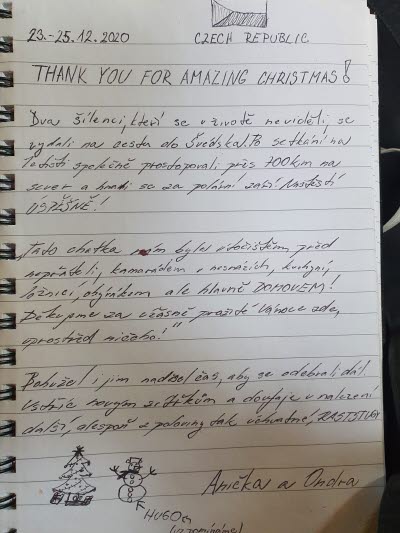 23.-25.12.2020 CZECH REPUBLIC
THANK YOU FOR AMAZING CHRISTMAS!
Dva šílenci, kteří se v životě neviděli, se
vydali na cestu do Švédska. Po setkání na
letišti společně prostopovali přes 700km na
sever a hnali se za polární září. Naštěstí
ÚSPĚŠNĚ!
Tato chatka nám byla útočištěm před
nepřáteli, kamarádem v nesnázích, kuchyní,
ložnicí, obývákem ale hlavně DOMOVEM!
Děkujeme za úžasné prožité Vánoce zde,
"uprostřed ničeho!"
Bohužel i jim nadešel čas, aby se odebrali dál
vstříc novým zážitkům a doufaje v nalezení
další, alespoň z poloviny tak úchvatné,
Anička a Ondra
HUGO